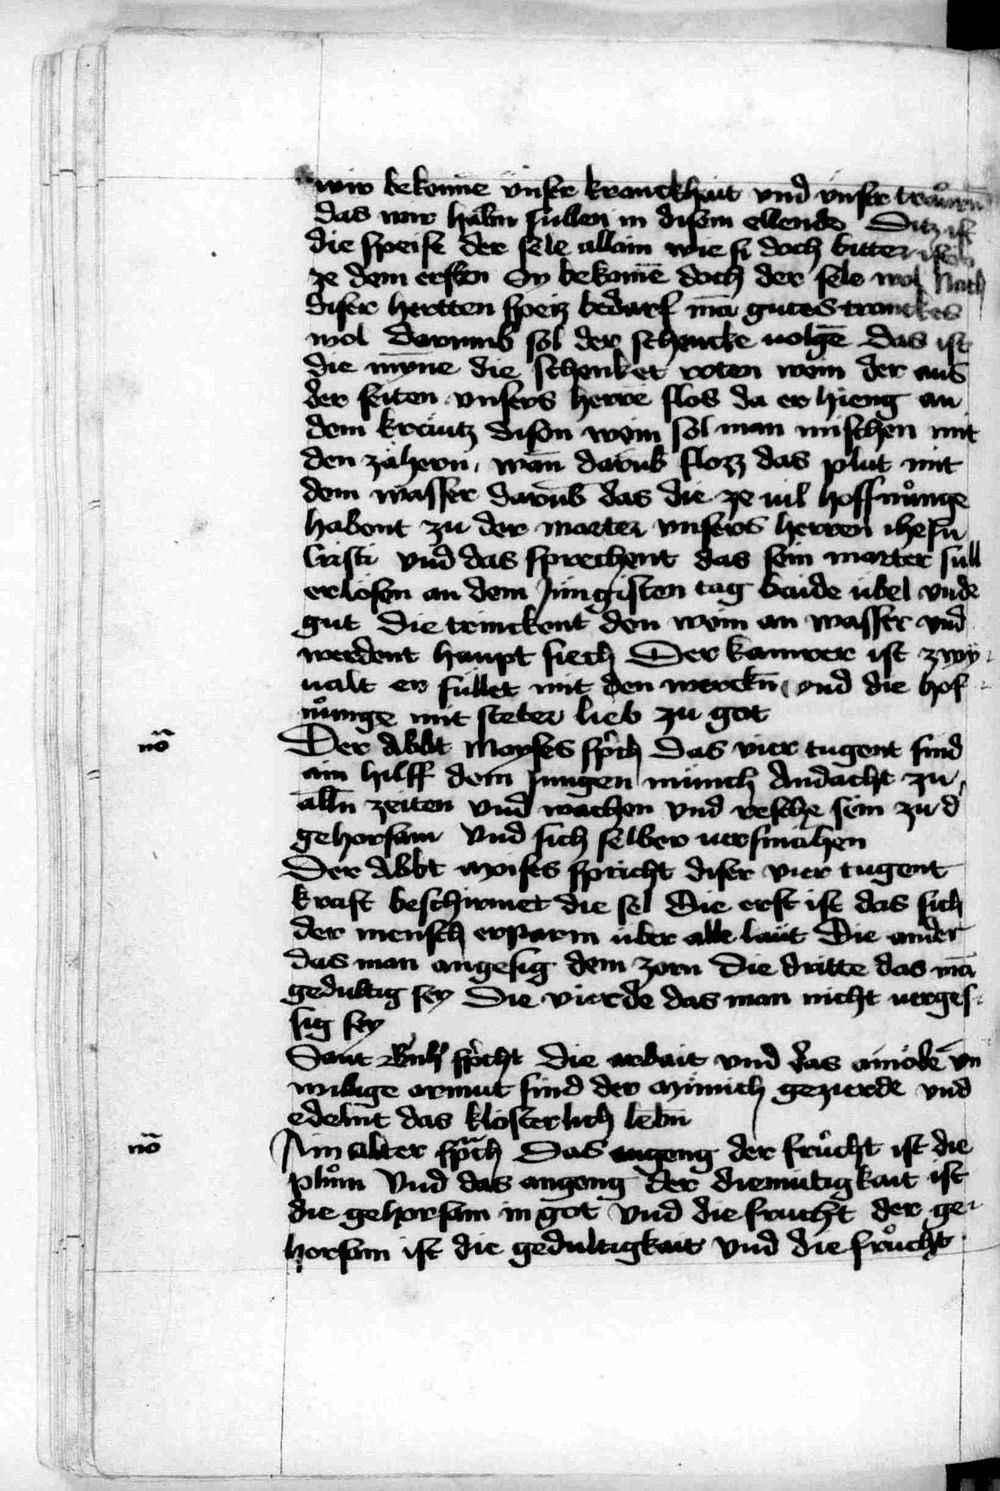 wir bekennē vnser kranckhait vnd vnser traůrn̄
das wir habn̄ sullen in disem ellende Ditz ist
die speise der sele allain wie si doch bitter
ze dem ersten Sy bekomē doch der sele wol Nach
diser hertten speiz bedarf mā gutes tranckes
wol darumb sol der schencke uolgē das ist
die mȳne die schenket roten wein der aus
der seiten vnsers herrē flos da er hieng an
dem kräutz disen wein sol man mischen mit
den zähern, wān darūb flozz das plůt mit
dem wasser darūb das die ze uil hoffnůnge
habent zu der marter vnsers herren ihesu
cristi vnd das sprechent das sein marter sull
erlösen an dem Jüngisten tag baide übel vnde
gut Die trinckent den wein an wasser vnd
werdent haupt siech Der kamrer ist zwy-
ualt er füllet mit den werckn̄ vnd die hof-
nůnge mit steter lieb zu got
nō
Der Abbt Moyses sp̄ch Das vier tugent sind
ain hilff dem Jungen münch Andacht zu
alln̄ zeiten vnd wachen vnd resche sein zu d
gehorsam Vnd sich selber uersmähen
Der Abbt Moises spricht diser vier tugent
kraft beschirmet die sel Die erst ist das sich
der mensch erparm über alle läut Die ander
das man angesig dem zorn Die dritte das mā
gedultig sey Die vierde das man nicht uerges-
sig sey
Sant sp̄cht die arbait vnd das ainöde vn̄
willige armut sind der Münich gezierde vnd
edelnt das klosterlich lebn̄
nō
Ain alter sp̄ch Das angeng der frůcht ist die
plům Vnd das angeng der diemütigkait ist
die gehorsam in got Vnd die frucht der ge-
horsam ist die gedultigkait Vnd die frůcht